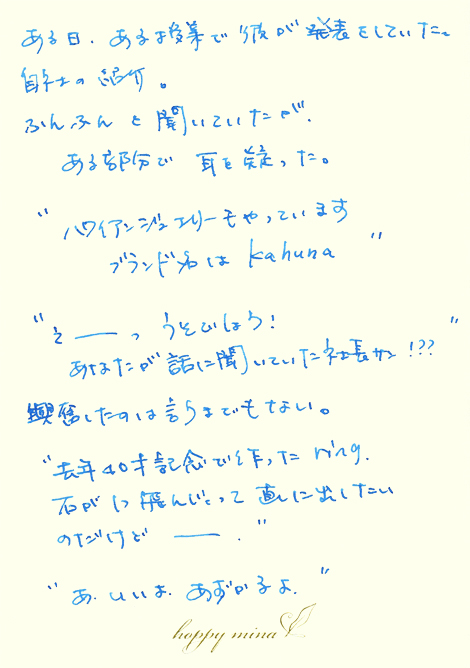 ある日、ある授業で彼が発表をしていた。
自分の紹介。
ふんふんと聞いていたが、
ある部分で耳を疑った。
"ハワイアンジュエリーもやっています
ブランド名は kahuna"
"え――っ うそでしょう!
あなたが話に聞いていた社長サン!??"
興奮したのは言うまでもない。
"去年40才記念で作ったring.
石が1つ飛んじゃって直しに出したい
のだけど――."
"あ、いいよ、あずかるよ。"
happy mina